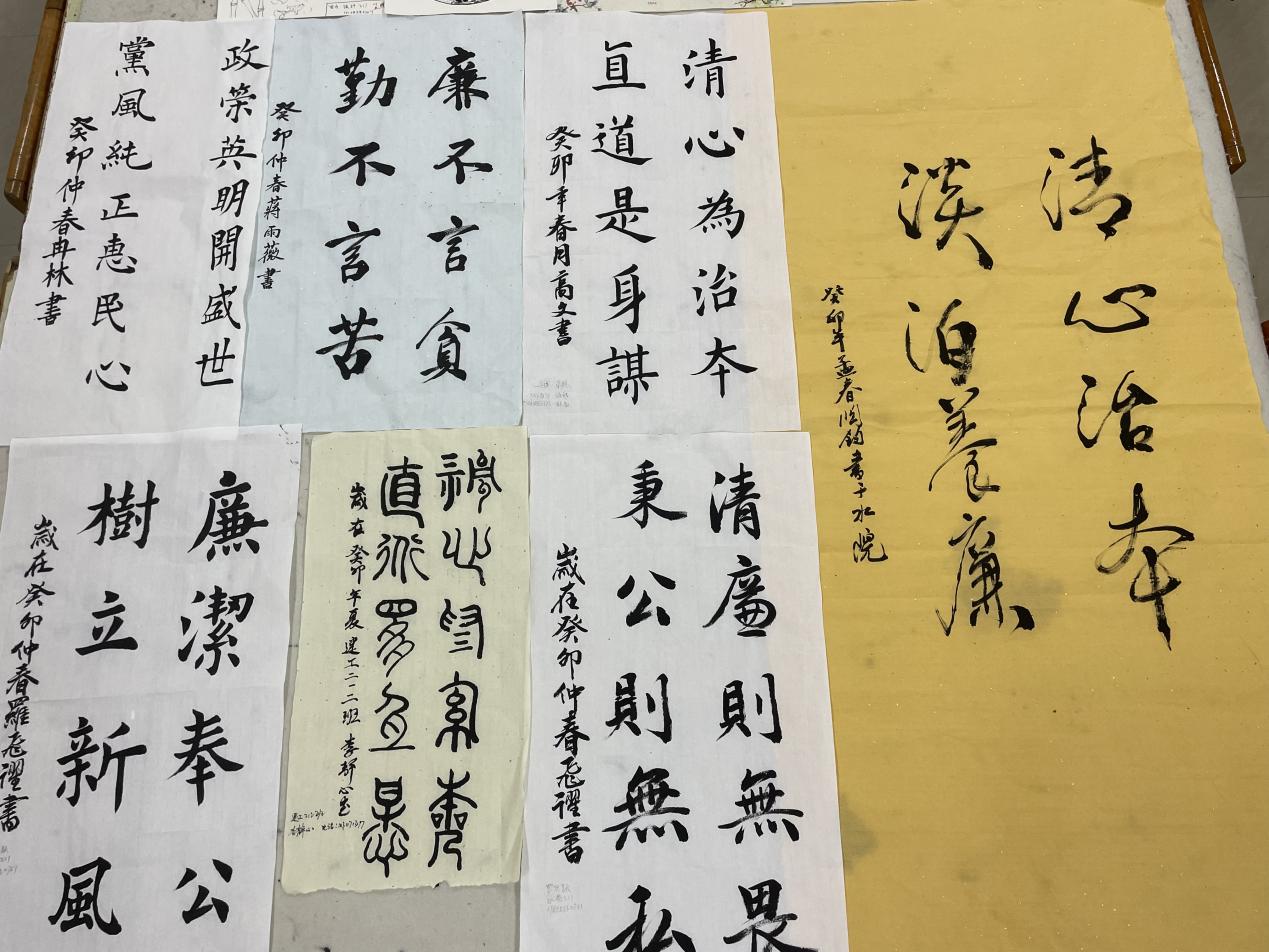 政榮英明開盛世
黨風純正惠民心
癸卯仲春冉林書
廉不言貪
勤不言苦
癸卯仲春蔣雨薇書
清心為治本
直道是身謀
癸卯年春月高文書
清心治本
淡泊養廉
癸卯年孟春
書于水院
廉潔奉公
樹立新風
歲在癸卯仲春羅飛躍書
歲在癸卯年夏建工二一二班李靜心書
清廉則無畏
秉公則無私
歲在癸卯仲春飛躍書